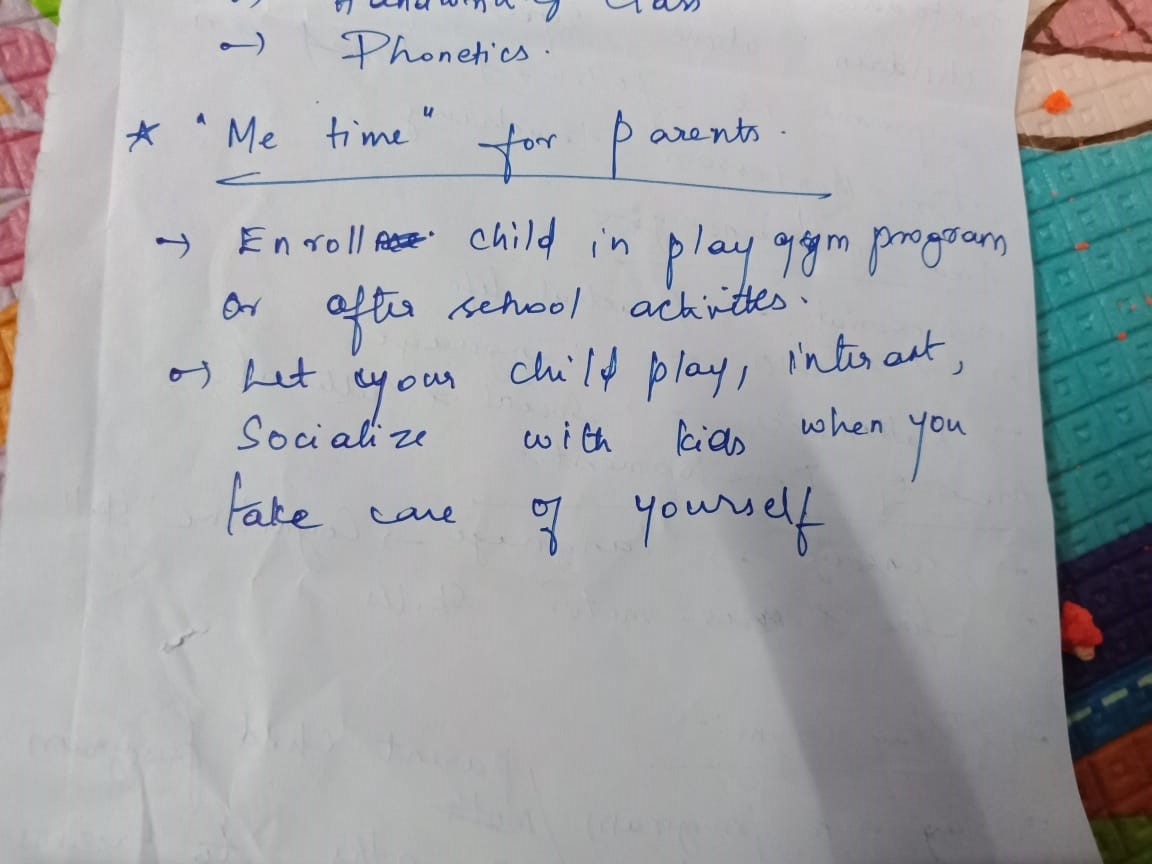 → Phonetics.
★ "Me time" for parents.
→ Enroll child in play gym program
or after school activities.
→ Let your child play, interact,
Socialize with kids when you
take care of yourself